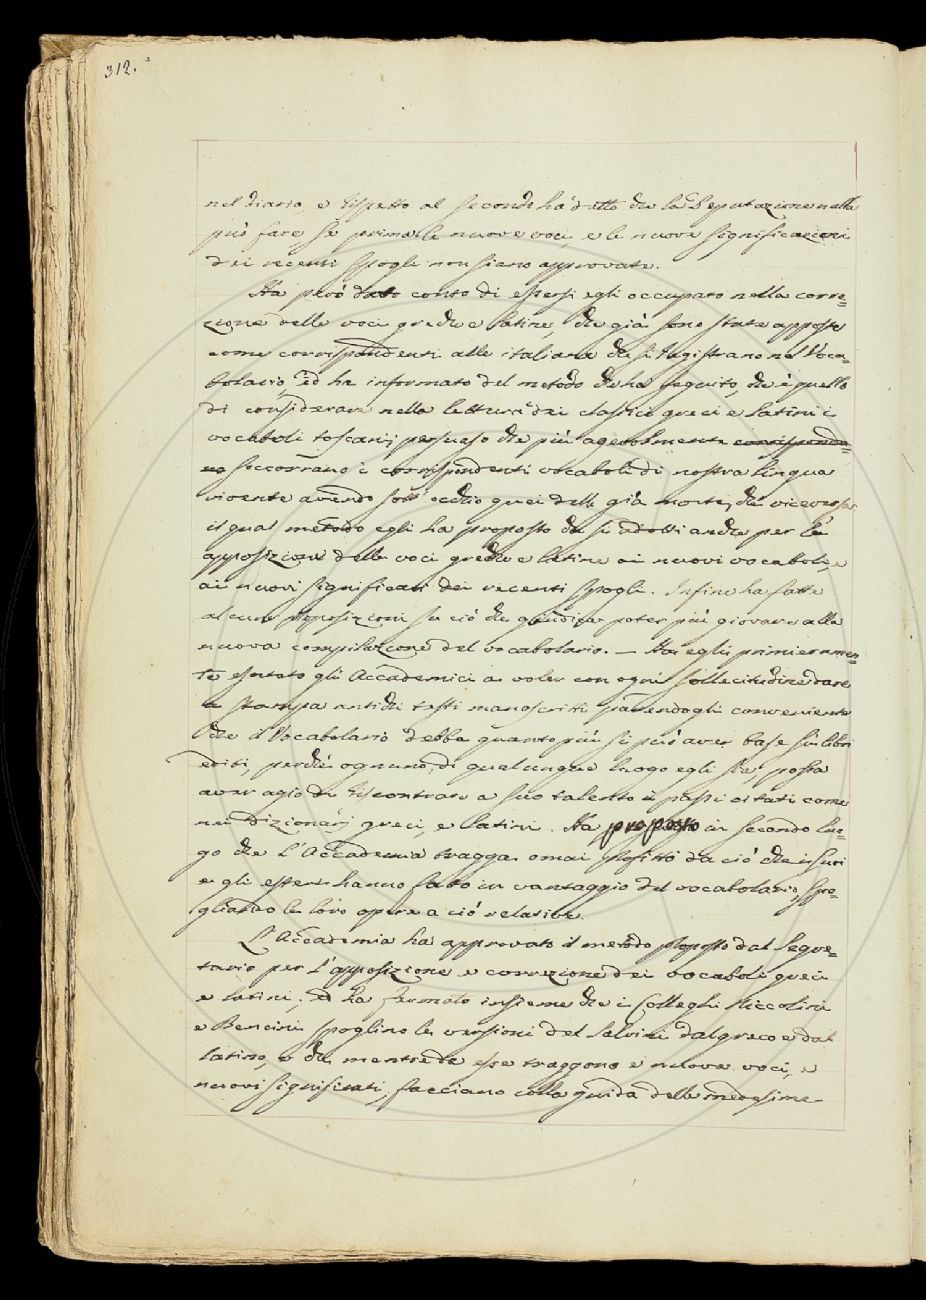 312.
nel diario, e rispetto al secondo ha detto che la Deputazione nulla
può fare, se prima le nuove voci, e le nuove significazioni
dei recenti spogli non siano approvate.
Ha però dato conto di essersi egli occupato nella corre=
zione delle voci greche e latine, che già sono state apposte
come corrispondenti alle italiane che si registrano nel Voca=
bolario, ed ha informato del metodo che ha seguito, che è quello
di considerare nella lettura dei classici greci e latini i
vocaboli toscani, persuaso che più agevolmente corrisponda=
no soccorrano i corrispondenti vocaboli di nostra lingua
vivente avendo sott'occhio quei delle già morte, che viceversa:
il qual metodo egli ha proposto che si adotti anche per le
apposizioni delle voci greche e latine ai nuovi vocaboli, e
ai nuovi significati dei recenti spogli. Infine ha fatte
alcune proposizioni su ciò che giudica poter più giovare alla
nuova compilazione del vocabolario. — Ha egli primieramen=
te esortato gli Accademici a voler con ogni sollecitudine dare
a stampa antichi testi manoscritti parendogli conveniente
che il Vocabolario debba quanto più si può aver base su libri
editi, perchè ognuno, di qualunque luogo egli sia, possa
aver agio di riscontrare a suo talento i passi citati come
nei dizionarj greci, e latini. Ha proposto in secondo luo=
go che l'Accademia tragga omai profitto da ciò che i suoi
e gli esteri hanno fatto in vantaggio del vocabolario, spo=
gliando le loro opere a ciò relative.
L'Accademia ha approvato il metodo proposto dal Segre=
tario per l'apposizione e correzione dei vocaboli greci
e latini; ed ha fermato insieme che i Colleghi Niccolini
e Bencini spoglino le versioni del Salvini dal greco e dal
latino, e che mentre da esse traggono e nuove voci, e
nuovi significati, facciano colla guida delle medesime